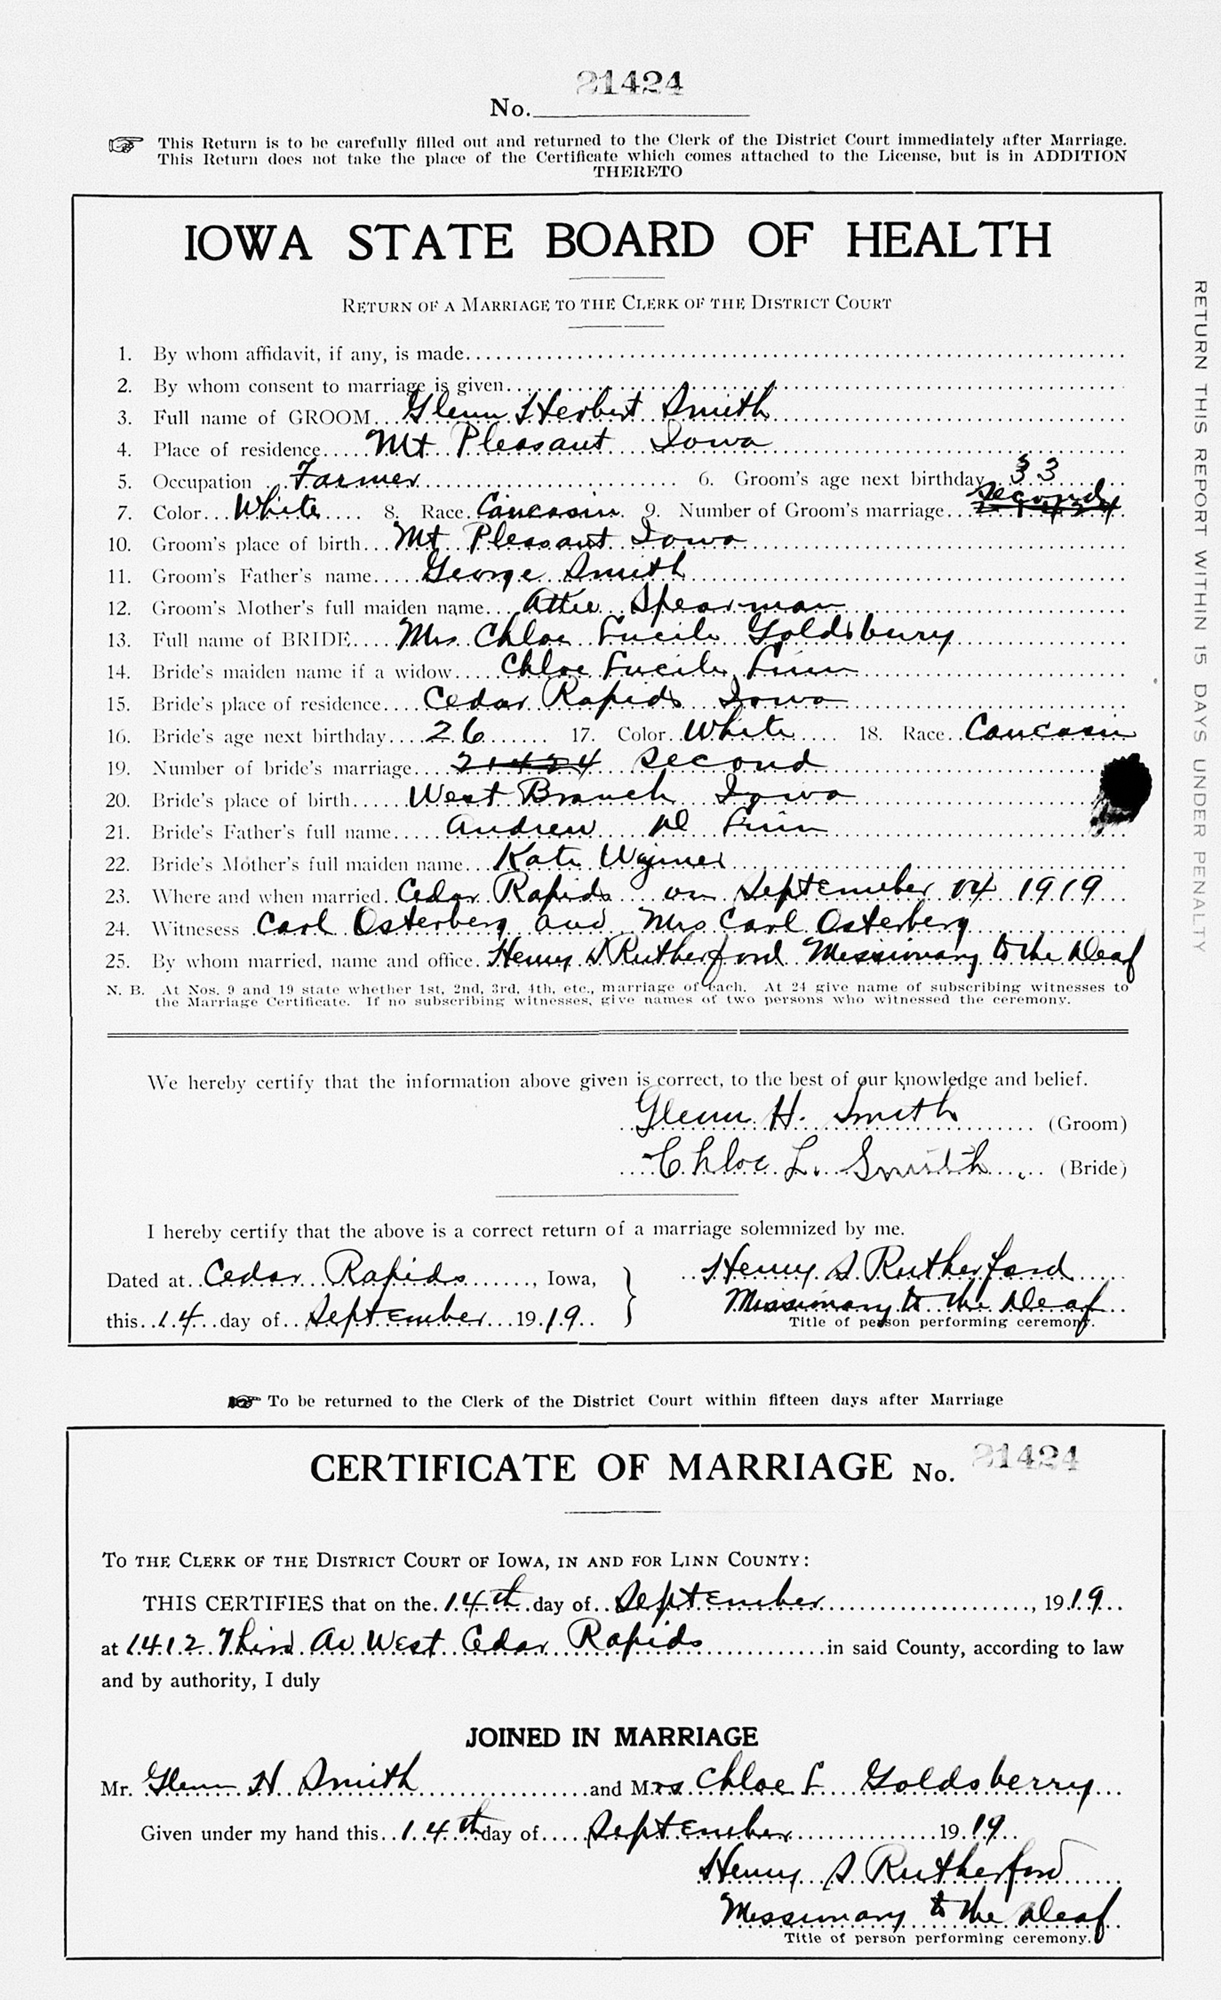 21424
No.
This Return is to be carefully filled out and returned to the Clerk of the District Court immediately after Marriage.
This Return does not take the place of the Certificate which comes attached to the License, but is in ADDITION
THERETO
IOWA STATE BOARD OF HEALTH
RETURN OF A MARRIAGE TO THE CLERK OF THE DISTRICT COURT
1. By whom affidavit, if any, is made
2. By whom consent to marriage is given
3. Full name of GROOM Glenn Herbert Smith
4. Place of residence Mt Pleasant Iowa
5. Occupation Farmer 6. Groom's age next birthday 33
7. Color White 8. Race Caucasin 9. Number of Groom's marriage 21424 second
10. Groom's place of birth Mt Pleasant Iowa
11. Groom's Father's name George Smith
12. Groom's Mother's full maiden name Attie Spearman
13. Full name of BRIDE Mrs Chloe Lucile Goldsbury
14. Bride's maiden name if a widow Chloe Lucile Finn
15. Bride's place of residence Cedar Rapids Iowa
16. Bride's age next birthday 26 17. Color White 18. Race Caucasin
19. Number of bride's marriage 21424 second
20. Bride's place of birth West Branch Iowa
21. Bride's Father's full name Andrew D Finn
22. Bride's Mother's full maiden name Kate
23. Where and when married Cedar Rapids on September 14 1919
24. Witnesess Carl Osterberg and Mrs Carl Osterberg
25. By whom married, name and office Henry S Rutherford Missionary to the Deaf
N. B. At Nos. 9 and 19 state whether 1st, 2nd, 3rd, 4th, etc., marriage of each. At 24 give name of subscribing witnesses to
the Marriage Certificate. If no subscribing witnesses, give names of two persons who witnessed the ceremony.
We hereby certify that the information above given is correct, to the best of our knowledge and belief.
Glenn H. Smith (Groom)
Chloe L. Smith (Bride)
I hereby certify that the above is a correct return of a marriage solemnized by me.
Dated at Cedar Rapids, Iowa, Henry S Rutherford
this 14 day of September 1919 Missionary to the Deaf
Title of person performing ceremony.
RETURN THIS REPORT WITHIN 15 DAYS UNDER PENALTY
To be returned to the Clerk of the District Court within fifteen days after Marriage
CERTIFICATE OF MARRIAGE No. 21424
TO THE CLERK OF THE DISTRICT COURT OF IOWA, IN AND FOR LINN COUNTY:
THIS CERTIFIES that on the 14th day of September, 1919
at 1412 Third Av West Cedar Rapids in said County, according to law
and by authority, I duly
JOINED IN MARRIAGE
Mr. Glenn H Smith and Mrs Chloe L Goldsberry
Given under my hand this 14th day of September 1919
Henry S Rutherford
Missionary to the Deaf
Title of person performing ceremony.